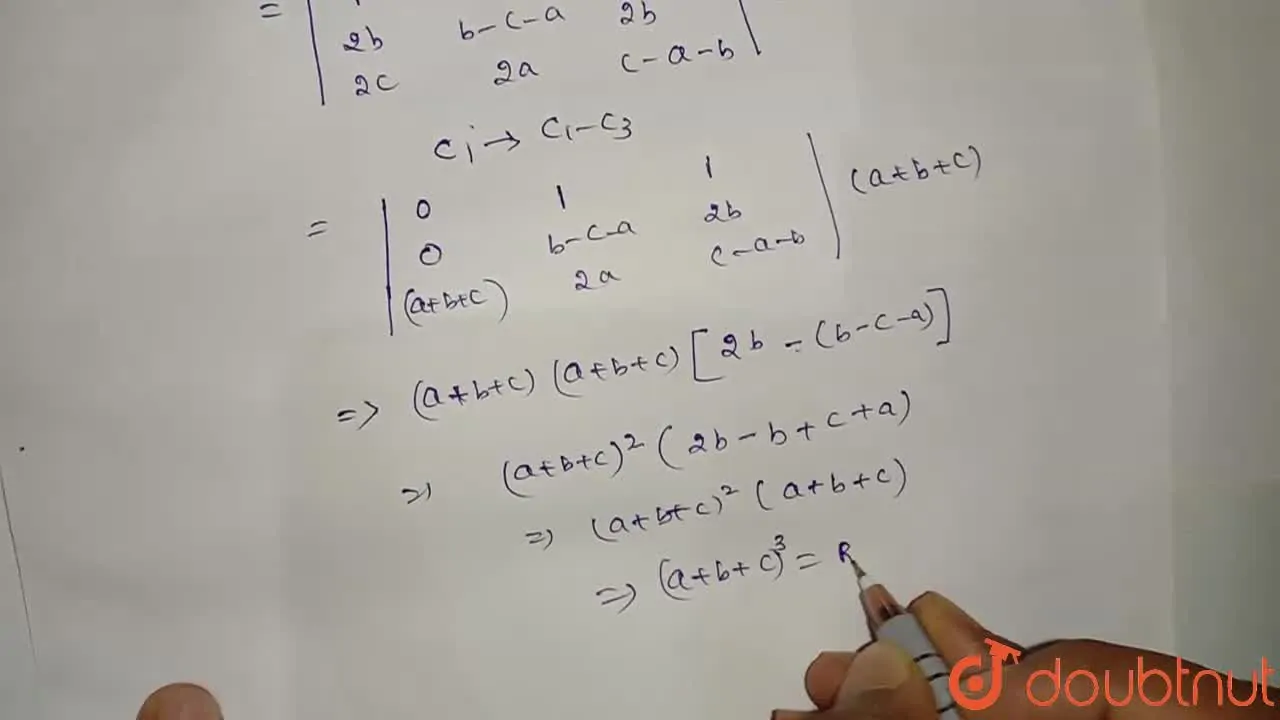 =
2b b-c-a 2b
2c 2a c-a-b
C₁ → C₁-C₃
= | 0 1 1 | (a+b+c)
0 b-c-a 2b
(a+b+c) 2a c-a-b
=> (a+b+c) (a+b+c) [2b - (b-c-a)]
=> (a+b+c)² (2b-b+c+a)
=> (a+b+c)² (a+b+c)
=> (a+b+c)³ = R
doubtnut